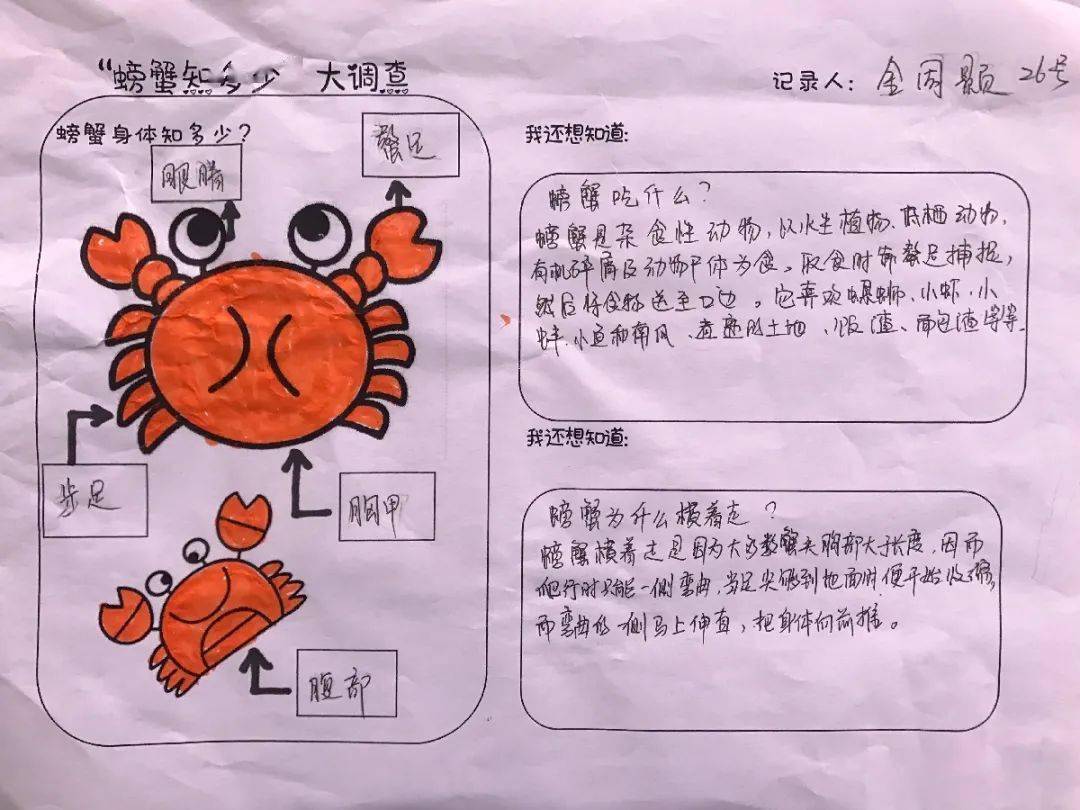 “螃蟹知多少 大调查
记录人: 金因颢 26号
螃蟹身体知多少?
眼睛
螯足
步足
胸甲
腹部
我还想知道:
螃蟹吃什么?
螃蟹是杂食性动物,以水生植物、底栖动物,
有机碎屑及动物尸体为食。取食时靠螯足捕捉,
然后将食物送至口边。它喜欢螺蛳、小虾、小
蚌、小鱼和南瓜、煮熟的土地、饭渣、面包渣等等.
我还想知道:
螃蟹为什么横着走?
螃蟹横着走是因为大多数蟹头胸部大于长度,因而
爬行时只能一侧弯曲,当足尖够到地面时便开始收缩,
而弯曲的一侧马上伸直,把身体向前推。